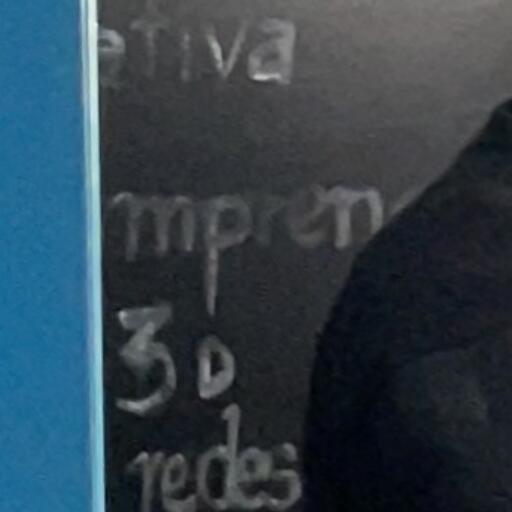 etiva
mpren
3D
redes